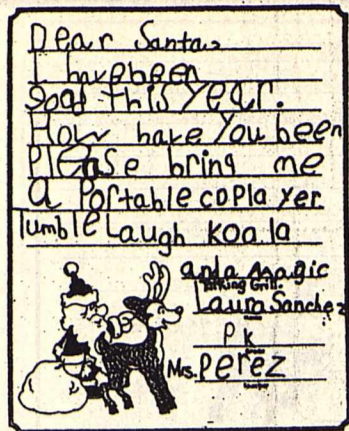 Dear Santa,
I havebeen
good this year.
How have You been
Please bring me
a Portable CD Pla yer
Tumble Laugh koala
anda Magic
Talking Grill.
Laura Sanchez
PK
Mrs. Perez